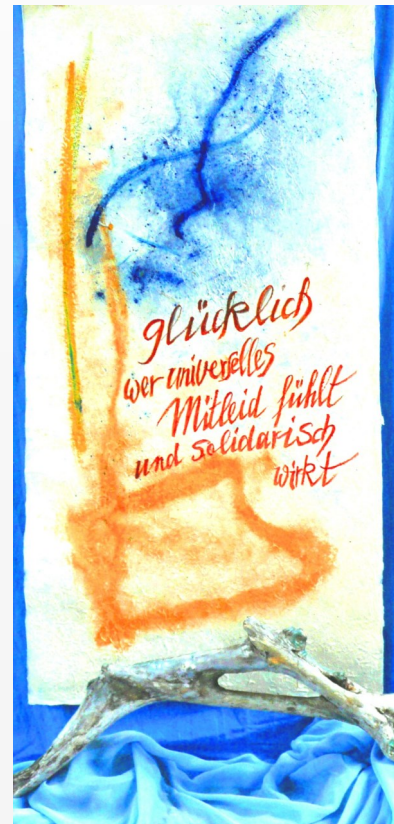 glücklich
wer universelles
Mitleid fühlt
und solidarisch
wirkt